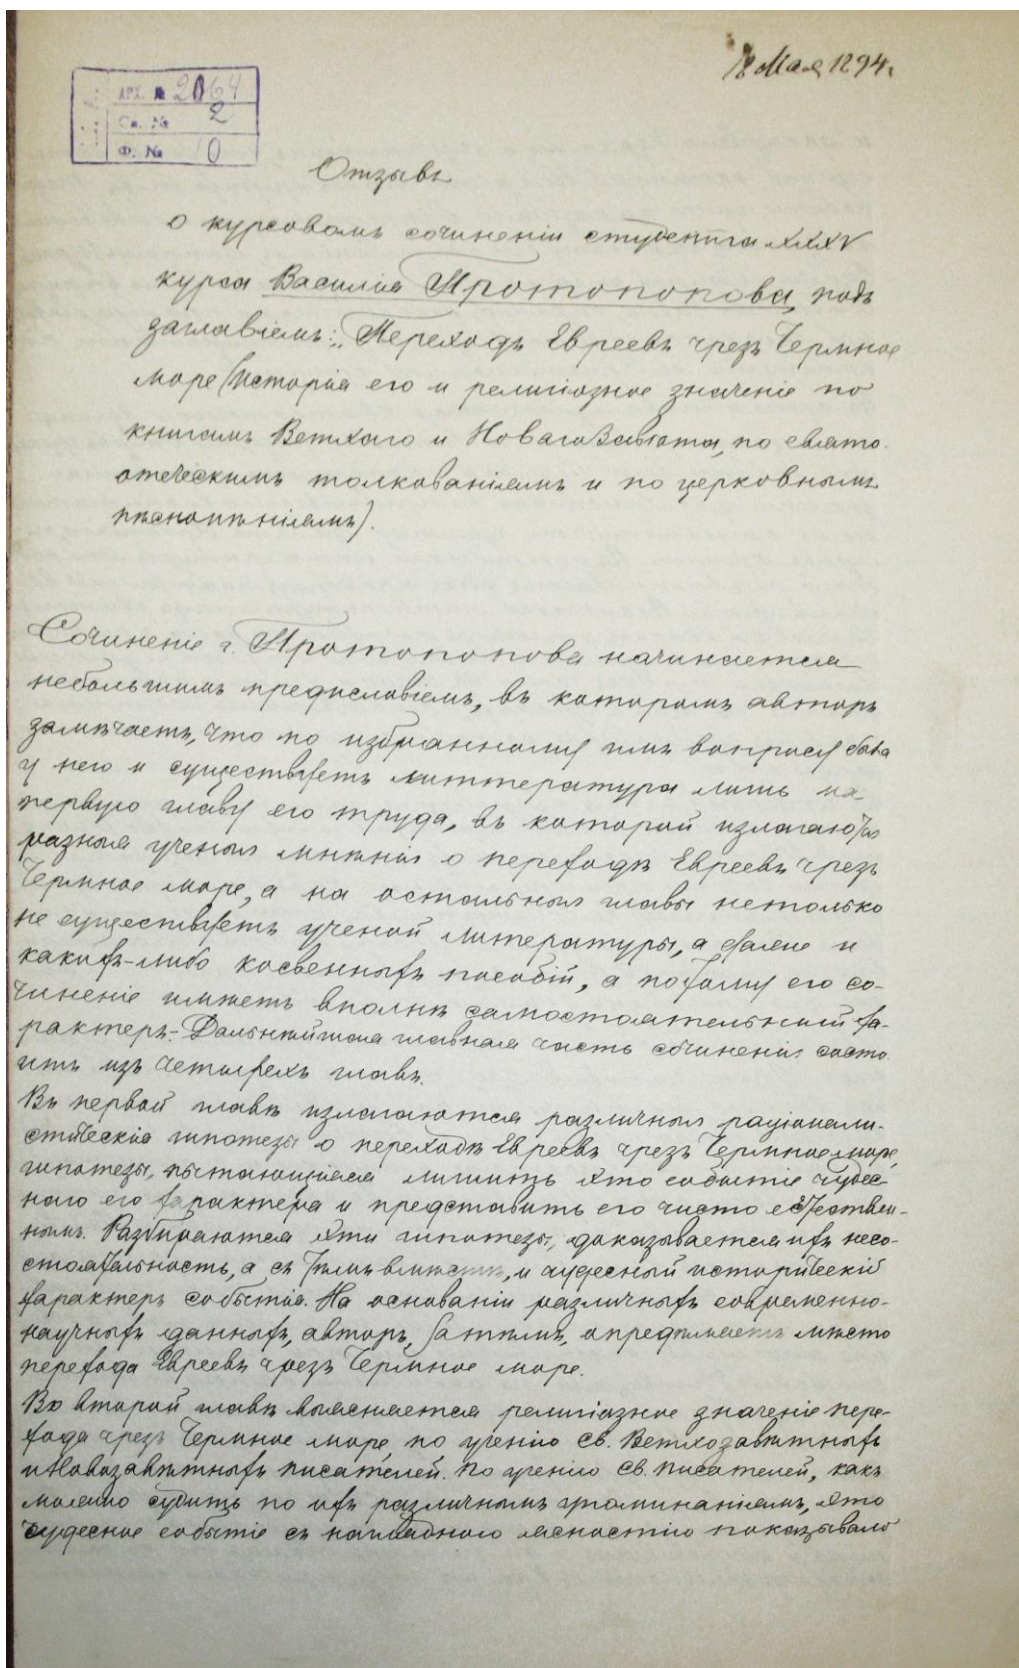 18 Мая 1894 г.
АРХ. № 2064
Св. № 2
Ф. № 10
Отзывъ
о курсовомъ сочиненіи студента XXXV
курса Василія Протопопова, подъ
заглавіемъ: „Переходъ Евреевъ чрезъ Чермное
море (исторія его и религіозное значеніе по
книгамъ Ветхаго и Новаго Завѣта, по свято-
отеческимъ толкованіямъ и по церковнымъ
пѣснопѣніямъ).
Сочиненіе г. Протопопова начинается
небольшимъ предисловіемъ, въ которомъ авторъ
замѣчаетъ, что по избранному имъ вопросу
у него и существуетъ литтература лишь на
первую главу его труда, въ которой излагаются
разныя ученыя мнѣнія о переходѣ Евреевъ чрезъ
Чермное море, а на остальныя главы нетолько
не существуетъ ученой литературы, а даже и
какихъ-либо косвенныхъ пособій, а потому его со-
чиненіе имѣетъ вполнѣ самостоятельный ха-
рактеръ.- Дальнѣйшая главная часть сочиненія состо-
итъ изъ четырехъ главъ.
Въ первой главѣ излагаются различныя раціонали-
стическія гипотезы о переходѣ Евреевъ чрезъ Чермное море,
гипотезы, пытающіяся лишить это событіе чудес-
наго его характера и представить его чисто естествен-
нымъ. Разбираются эти гипотезы, доказывается ихъ несо-
стоятельность, а съ тѣмъ вмѣстѣ, и чудесный историческій
характеръ событія. На основаніи различныхъ современно-
научныхъ данныхъ, авторъ, затѣмъ, опредѣляетъ мѣсто
перехода Евреевъ чрезъ Чермное море.
Во второй главѣ выясняется религіозное значеніе пере-
хода чрезъ Чермное море, по ученію св. Ветхозавѣтныхъ
и Новозавѣтныхъ писателей. По ученію св. писателей, какъ
можно судить по ихъ различнымъ упоминаніямъ, это
чудесное событіе съ наглядною ясностію показывало